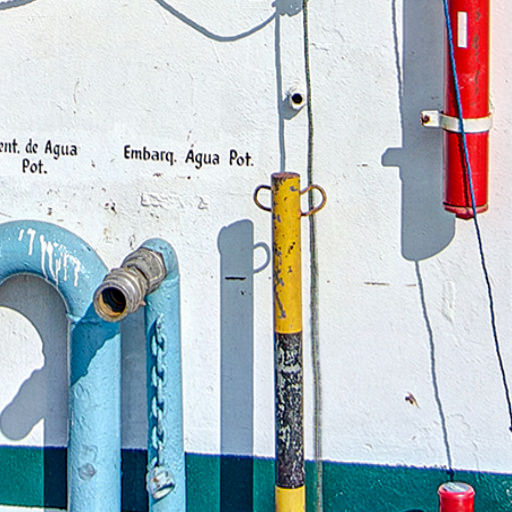 ent. de Agua
Pot.
Embarq. Agua Pot.